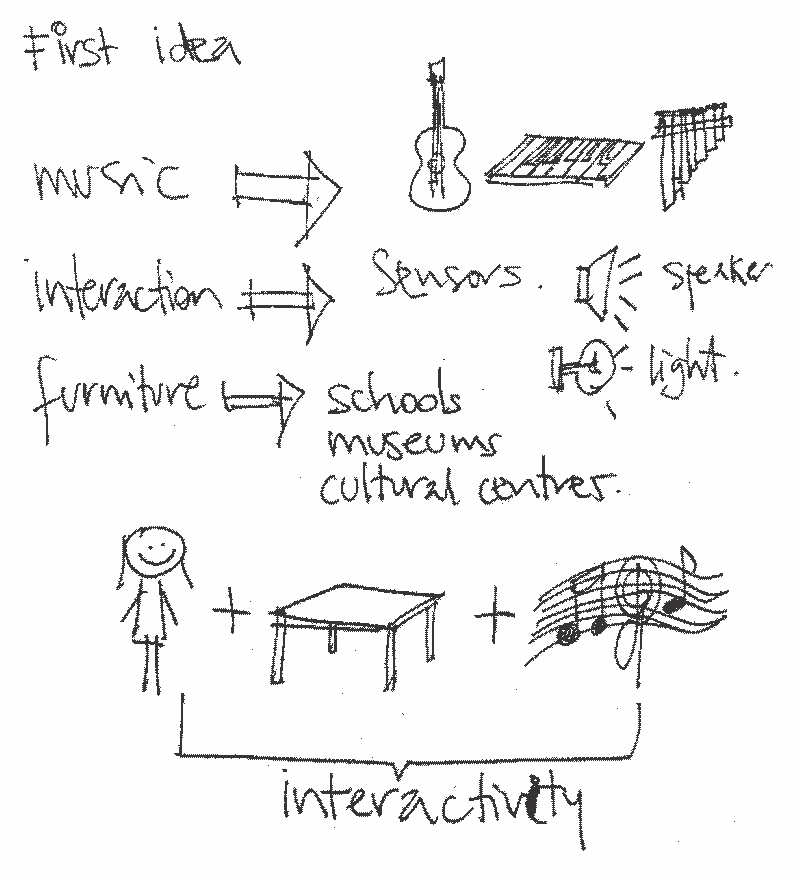 First idea
music
interaction
Sensors.
speaker
light.
furniture
schools
museums
cultural centres.
interactivity